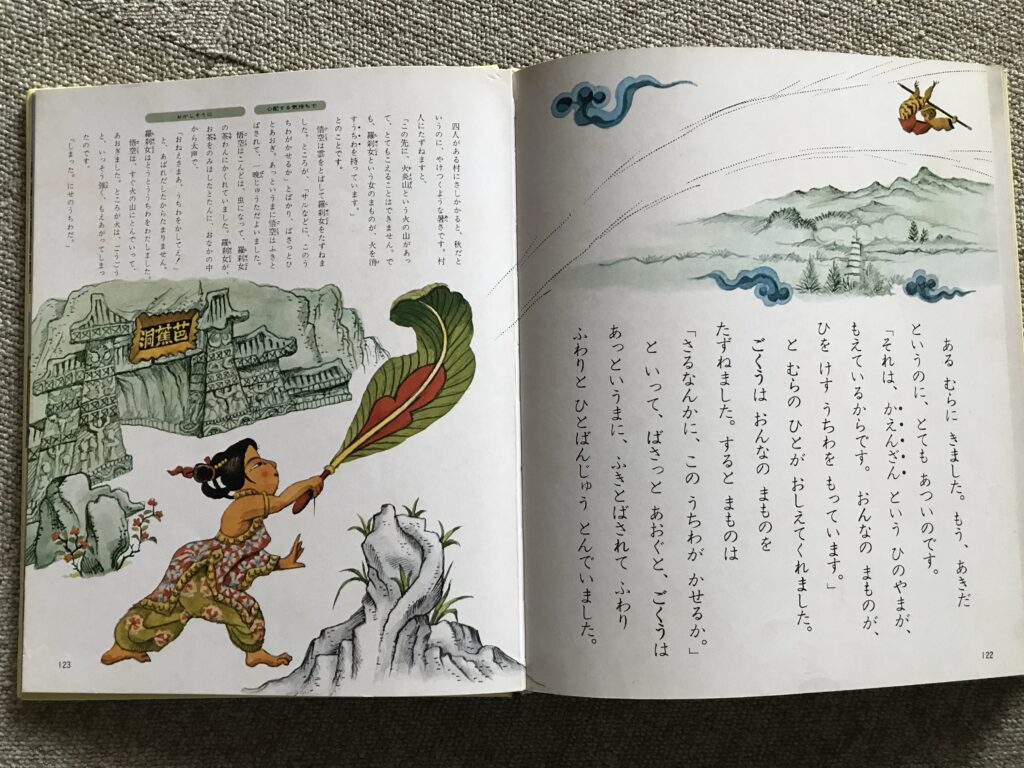 ある むらに きました。もう、あきだ
というのに、とても あついのです。
「それは、かえんざん という ひのやまが、
もえているからです。 おんなの まものが、
ひを けす うちわを もっています。」
と むらの ひとが おしえてくれました。
ごくうは おんなの まものを
たずねました。すると まものは
「さるなんかに、この うちわが かせるか。」
と いって、ばさっと あおぐと、ごくうは
あっというまに、ふきとばされて ふわり
ふわりと ひとばんじゅう とんでいました。
122
心配する気持ちで
おかしそうに
四人がある村にさしかかると、秋だと
いうのに、やけつくような暑さです。村
人にたずねますと、
「この先に、火炎山という火の山があっ
て、とてもこえることはできません。で
も、羅刹女という女のまものが、火を消
すうちわを持っています。」
とのことです。
悟空は雲をとばして羅刹女をたずねま
した。ところが、「サルなどに、このう
ちわがかせるか」とばかり、ばさっとひ
とあおぎ、あっというまに悟空はふきと
ばされて、晩じゅうただよいました。
悟空はこんどは、虫になって、羅刹女
の茶わんにかくれていました。羅刹女が、
お茶をのみほしたとたんに、おなかの中
から大声で、
「おねえさまあ、うちわをかしてよ!」
と、あばれだしたからたまりません。
羅刹女はとうとううちわをわたしました。
悟空は、すぐ火の山にとんでいって、
あおぎました。ところが火は、ごうごう
と、いっそう強く、もえあがってしまっ
たのです。
「しまった。にせのうちわだ。」
芭蕉洞
123